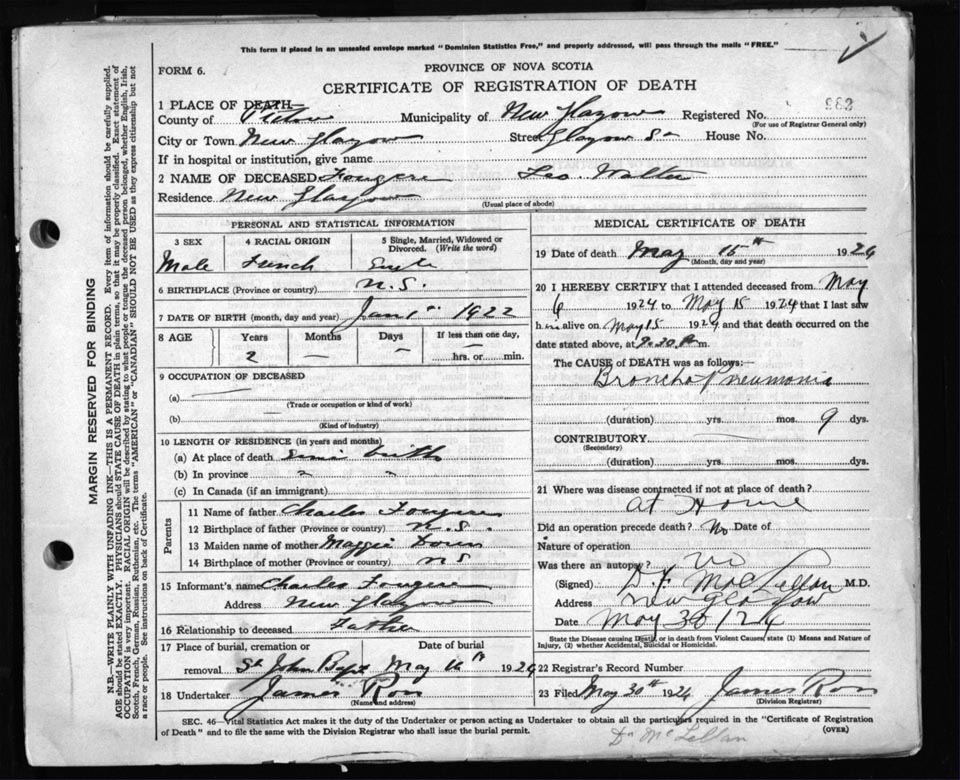 This form if placed in an unsealed envelope marked "Dominion Statistics Free," and properly addressed, will pass through the mails "FREE."
FORM 6.
PROVINCE OF NOVA SCOTIA
CERTIFICATE OF REGISTRATION OF DEATH
1 PLACE OF DEATH
883
County of Pictou Municipality of New Glasgow Registered No.
(For use of Registrar General only)
City or Town New Glasgow Street Glasgow St House No.
If in hospital or institution, give name
2 NAME OF DECEASED Fougere Leo. Walter
Residence New Glasgow
(Usual place of abode)
PERSONAL AND STATISTICAL INFORMATION
3 SEX 4 RACIAL ORIGIN 5 Single, Married, Widowed or Divorced. (Write the word)
Male French Single
6 BIRTHPLACE (Province or country) N.S.
7 DATE OF BIRTH (month, day and year) Jan 1st 1922
8 AGE Years Months Days If less than one day,
2 — — — hrs. or min.
9 OCCUPATION OF DECEASED
(a) —
(Trade or occupation or kind of work)
(b)
(Kind of industry)
10 LENGTH OF RESIDENCE (in years and months)
(a) At place of death Since birth
(b) In province " "
(c) In Canada (if an immigrant)
Parents
11 Name of father Charles Fougere
12 Birthplace of father (Province or country) N.S.
13 Maiden name of mother Maggie
14 Birthplace of mother (Province or country) N S
15 Informant's name Charles Fougere
Address New Glasgow
16 Relationship to deceased Father
17 Place of burial, cremation or removal Date of burial
St John Bapt May 1924
18 Undertaker James Ross
(Name and address)
MEDICAL CERTIFICATE OF DEATH
19 Date of death May 15th 1924
(Month, day and year)
20 I HEREBY CERTIFY that I attended deceased from May
6 1924 to May 15 1924 that I last saw
him alive on May 15 1924 and that death occurred on the
date stated above, at 9.30 P.m.
The CAUSE of DEATH was as follows:—
Broncho Pneumonia
(duration) yrs. mos. 9 dys.
CONTRIBUTORY
(Secondary)
(duration) yrs. mos. dys.
21 Where was disease contracted if not at place of death?
At Home
Did an operation precede death? No Date of
Nature of operation
Was there an autopsy? No
(Signed) D. F. MacLellan M.D.
Address New Glasgow
Date May 30/24
State the Disease causing Death, or in death from Violent Causes, state (1) Means and Nature of
Injury, (2) whether Accidental, Suicidal or Homicidal.
22 Registrar's Record Number
23 Filed May 30th 1924 James Ross
(Division Registrar)
SEC. 46—Vital Statistics Act makes it the duty of the Undertaker or person acting as Undertaker to obtain all the particulars required in the "Certificate of Registration
of Death" and to file the same with the Division Registrar who shall issue the burial permit. (OVER)
Dr McLellan
MARGIN RESERVED FOR BINDING
N.B.—WRITE PLAINLY WITH UNFADING INK—THIS IS A PERMANENT RECORD. Every item of information should be carefully supplied.
AGE should be stated EXACTLY. PHYSICIANS should STATE CAUSE OF DEATH in plain terms, so that it may be properly classified. Exact statement of
OCCUPATION is very important. RACIAL ORIGIN will be described by stating to what people or tongue the deceased person belonged, whether English, Irish,
Scotch, French, German, Russian, Ruthenian, etc. The terms "AMERICAN" or "CANADIAN" SHOULD NOT BE USED as they express citizenship but not
a race or people. See instructions on back of Certificate.